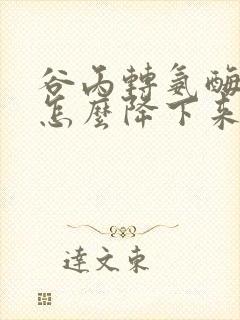 谷丙轉氨酶
怎麼降下來
達文東